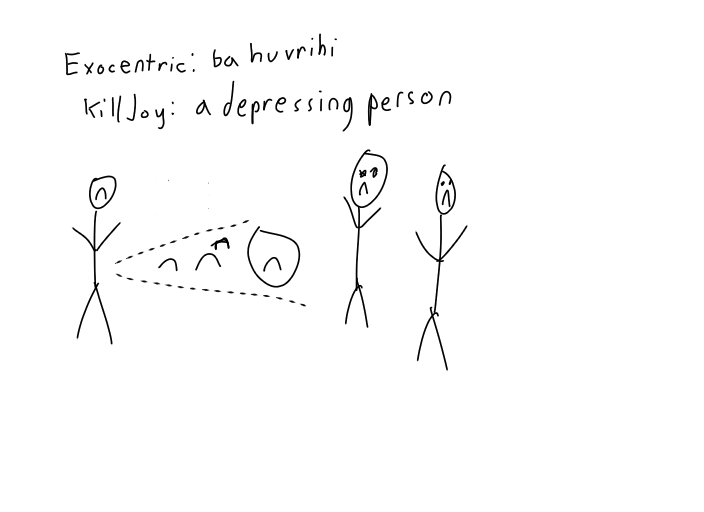 Exocentric: bahuvrihi
KillJoy: a depressing person